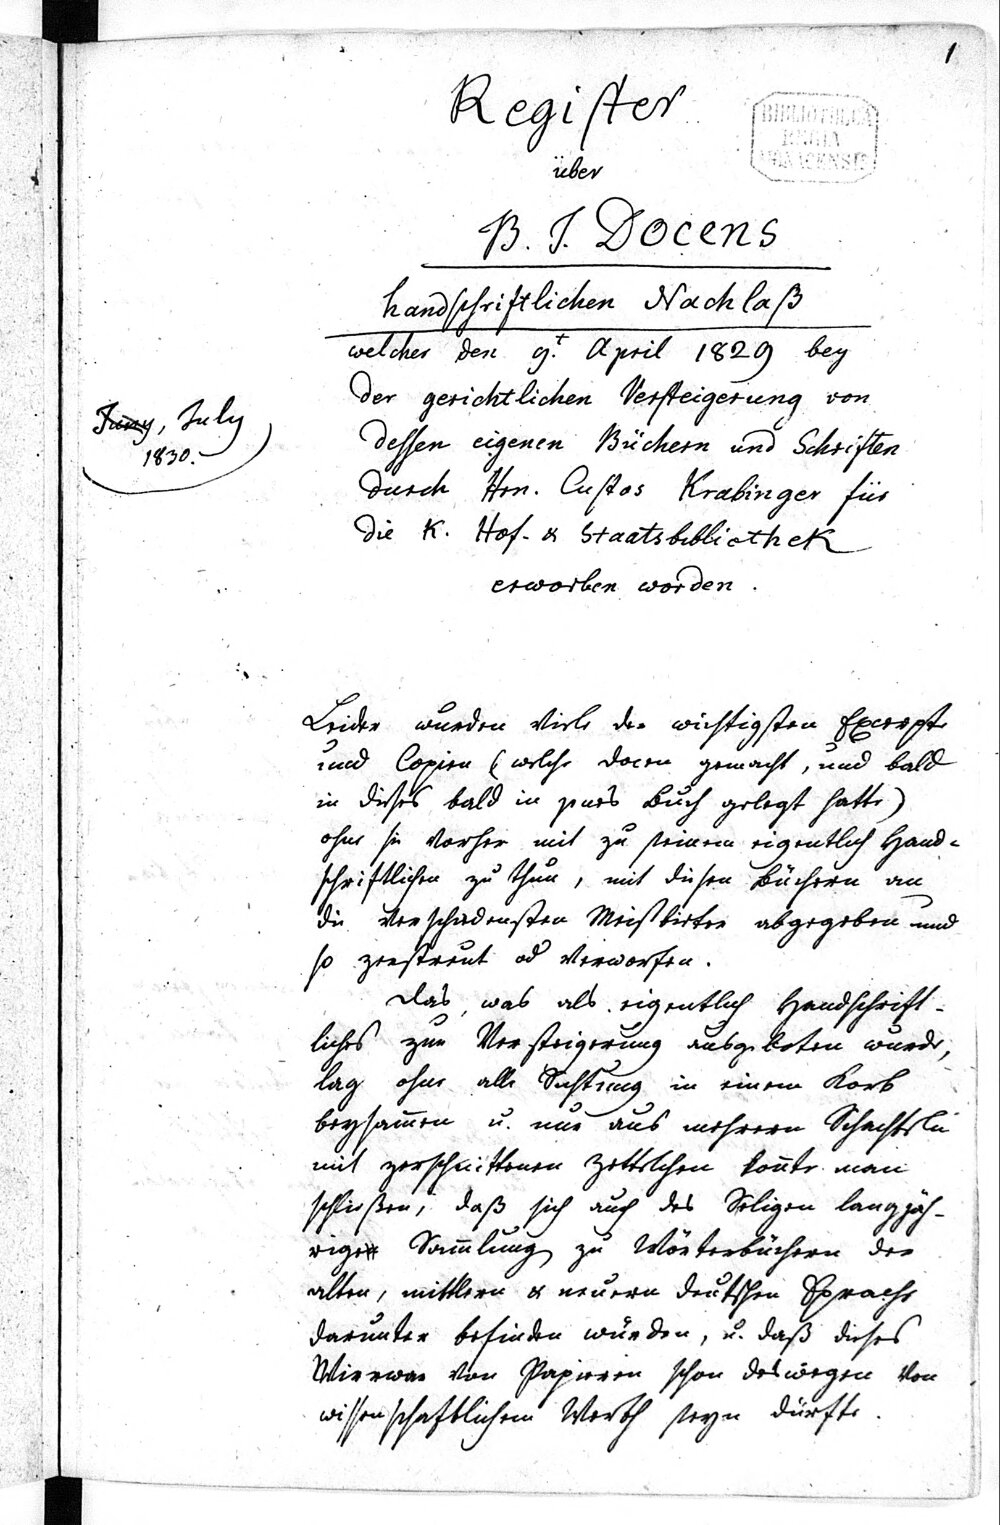 1
Register
BIBLIOTHECA
REGIA
MONACENSIS
über
B. J. Docens
handschriftlichen Nachlaß
welcher den 9.t April 1829 bey
der gerichtlichen Versteigerung von
dessen eigenen Büchern und Schriften
durch Hrn. Custos Krabinger für
die K. Hof- & Staatsbibliothek
erworben worden.
Juny, July
1830.
Leider wurden viele der wichtigsten Excerpte
und Copien (welche Docen gemacht, und bald
in dieses bald in jenes Buch gelegt hatte)
ohne sie vorher mit zu seinem eigentlich Hand-
schriftlichen zu thun, mit diesen Büchern an
die verschiedensten Meistbieter abgegeben und
so zerstreut od verworfen.
Das, was als eigentlich Handschrift-
liches zur Versteigerung ausgeboten wurde,
lag ohne alle Sichtung in einem Korb
beysam̄en u. nur aus mehrern Schachteln
mit zerschnittenen Zettelchen kon̄te man
schließen, daß sich auch des Seligen langjäh-
rige Sam̄lung zu Wörterbüchern der
alten, mittlern & neuern deutschen Sprache
darunter befinden würden, u. daß dieses
Wirrwar von Papieren schon deswegen von
wissenschaftlichem Werth seyn dürfte.